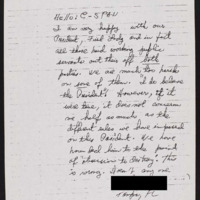 Hello! C-SPAN
I am very happy with our
President, First Lady and in fact
see those hard working public
servants out this off both
parties. We are much too harsh
on some of them. I do believe
the President! However, if it
was true, it does not concern
me half as much as the
different rules we have imposed
on this President. We have
him to the point
of "obsession to destroy". This
is wrong. Don't any one
Tampa, FL